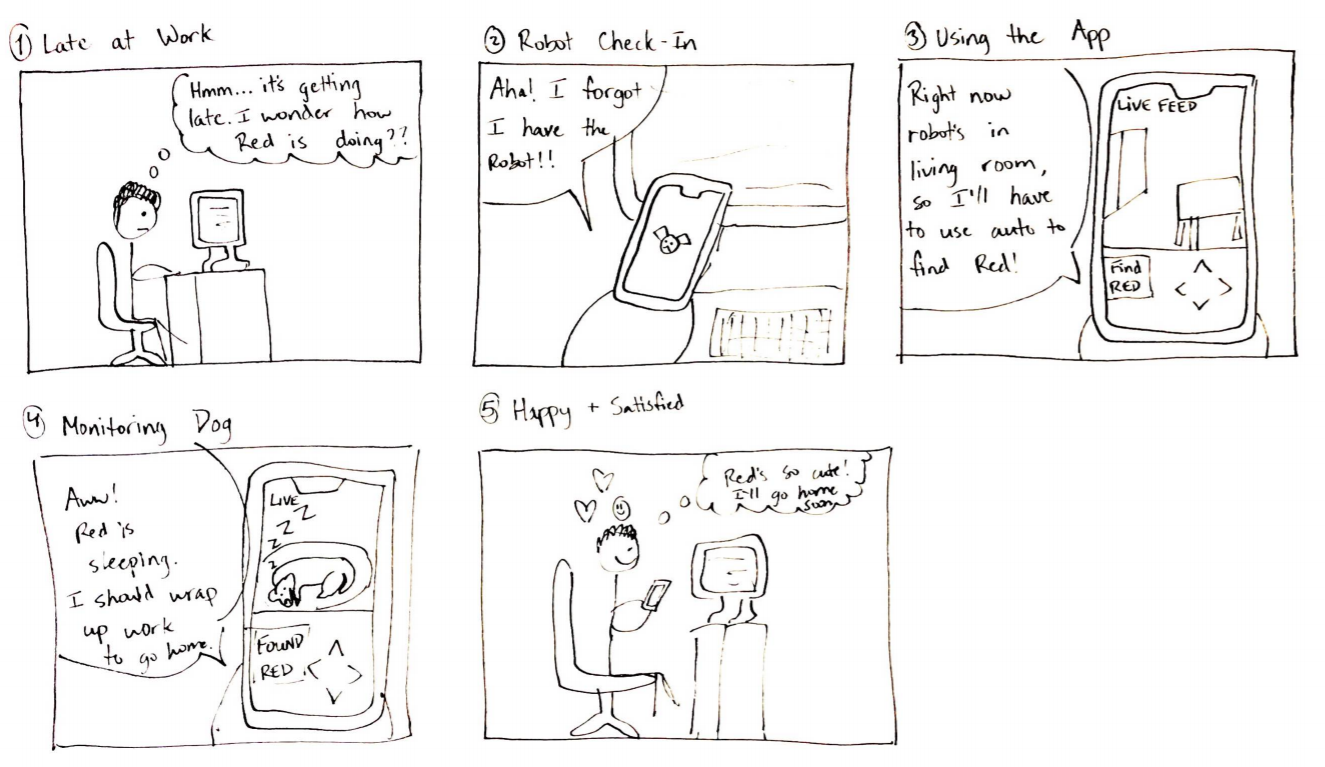 ① Late at Work
Hmm... it's getting
late. I wonder how
Red is doing??
② Robot Check-In
Aha! I forgot
I have the
Robot!!
③ Using the App
Right now
robot's in
living room,
so I'll have
to use auto to
find Red!
LIVE FEED
Find
RED
④ Monitoring Dog
Aww!
Red is
sleeping.
I should wrap
up work
to go home.
LIVE
Z
Z
Z
Z
FOUND
RED
⑤ Happy + Satisfied
Red's so cute!
I'll go home
soon